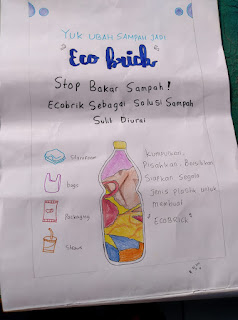 YUK UBAH SAMPAH JADI
"Eco brick"
Stop Bakar Sampah!
Ecobrik Sebagai Solusi Sampah
Sulit Diurai
Styrofoam
bags
Packaging
Straws
Kumpulkan,
Pisahkan, Bersihkan
Siapkan Segala
Jenis plastik untuk
membuat
"ECOBRICK"